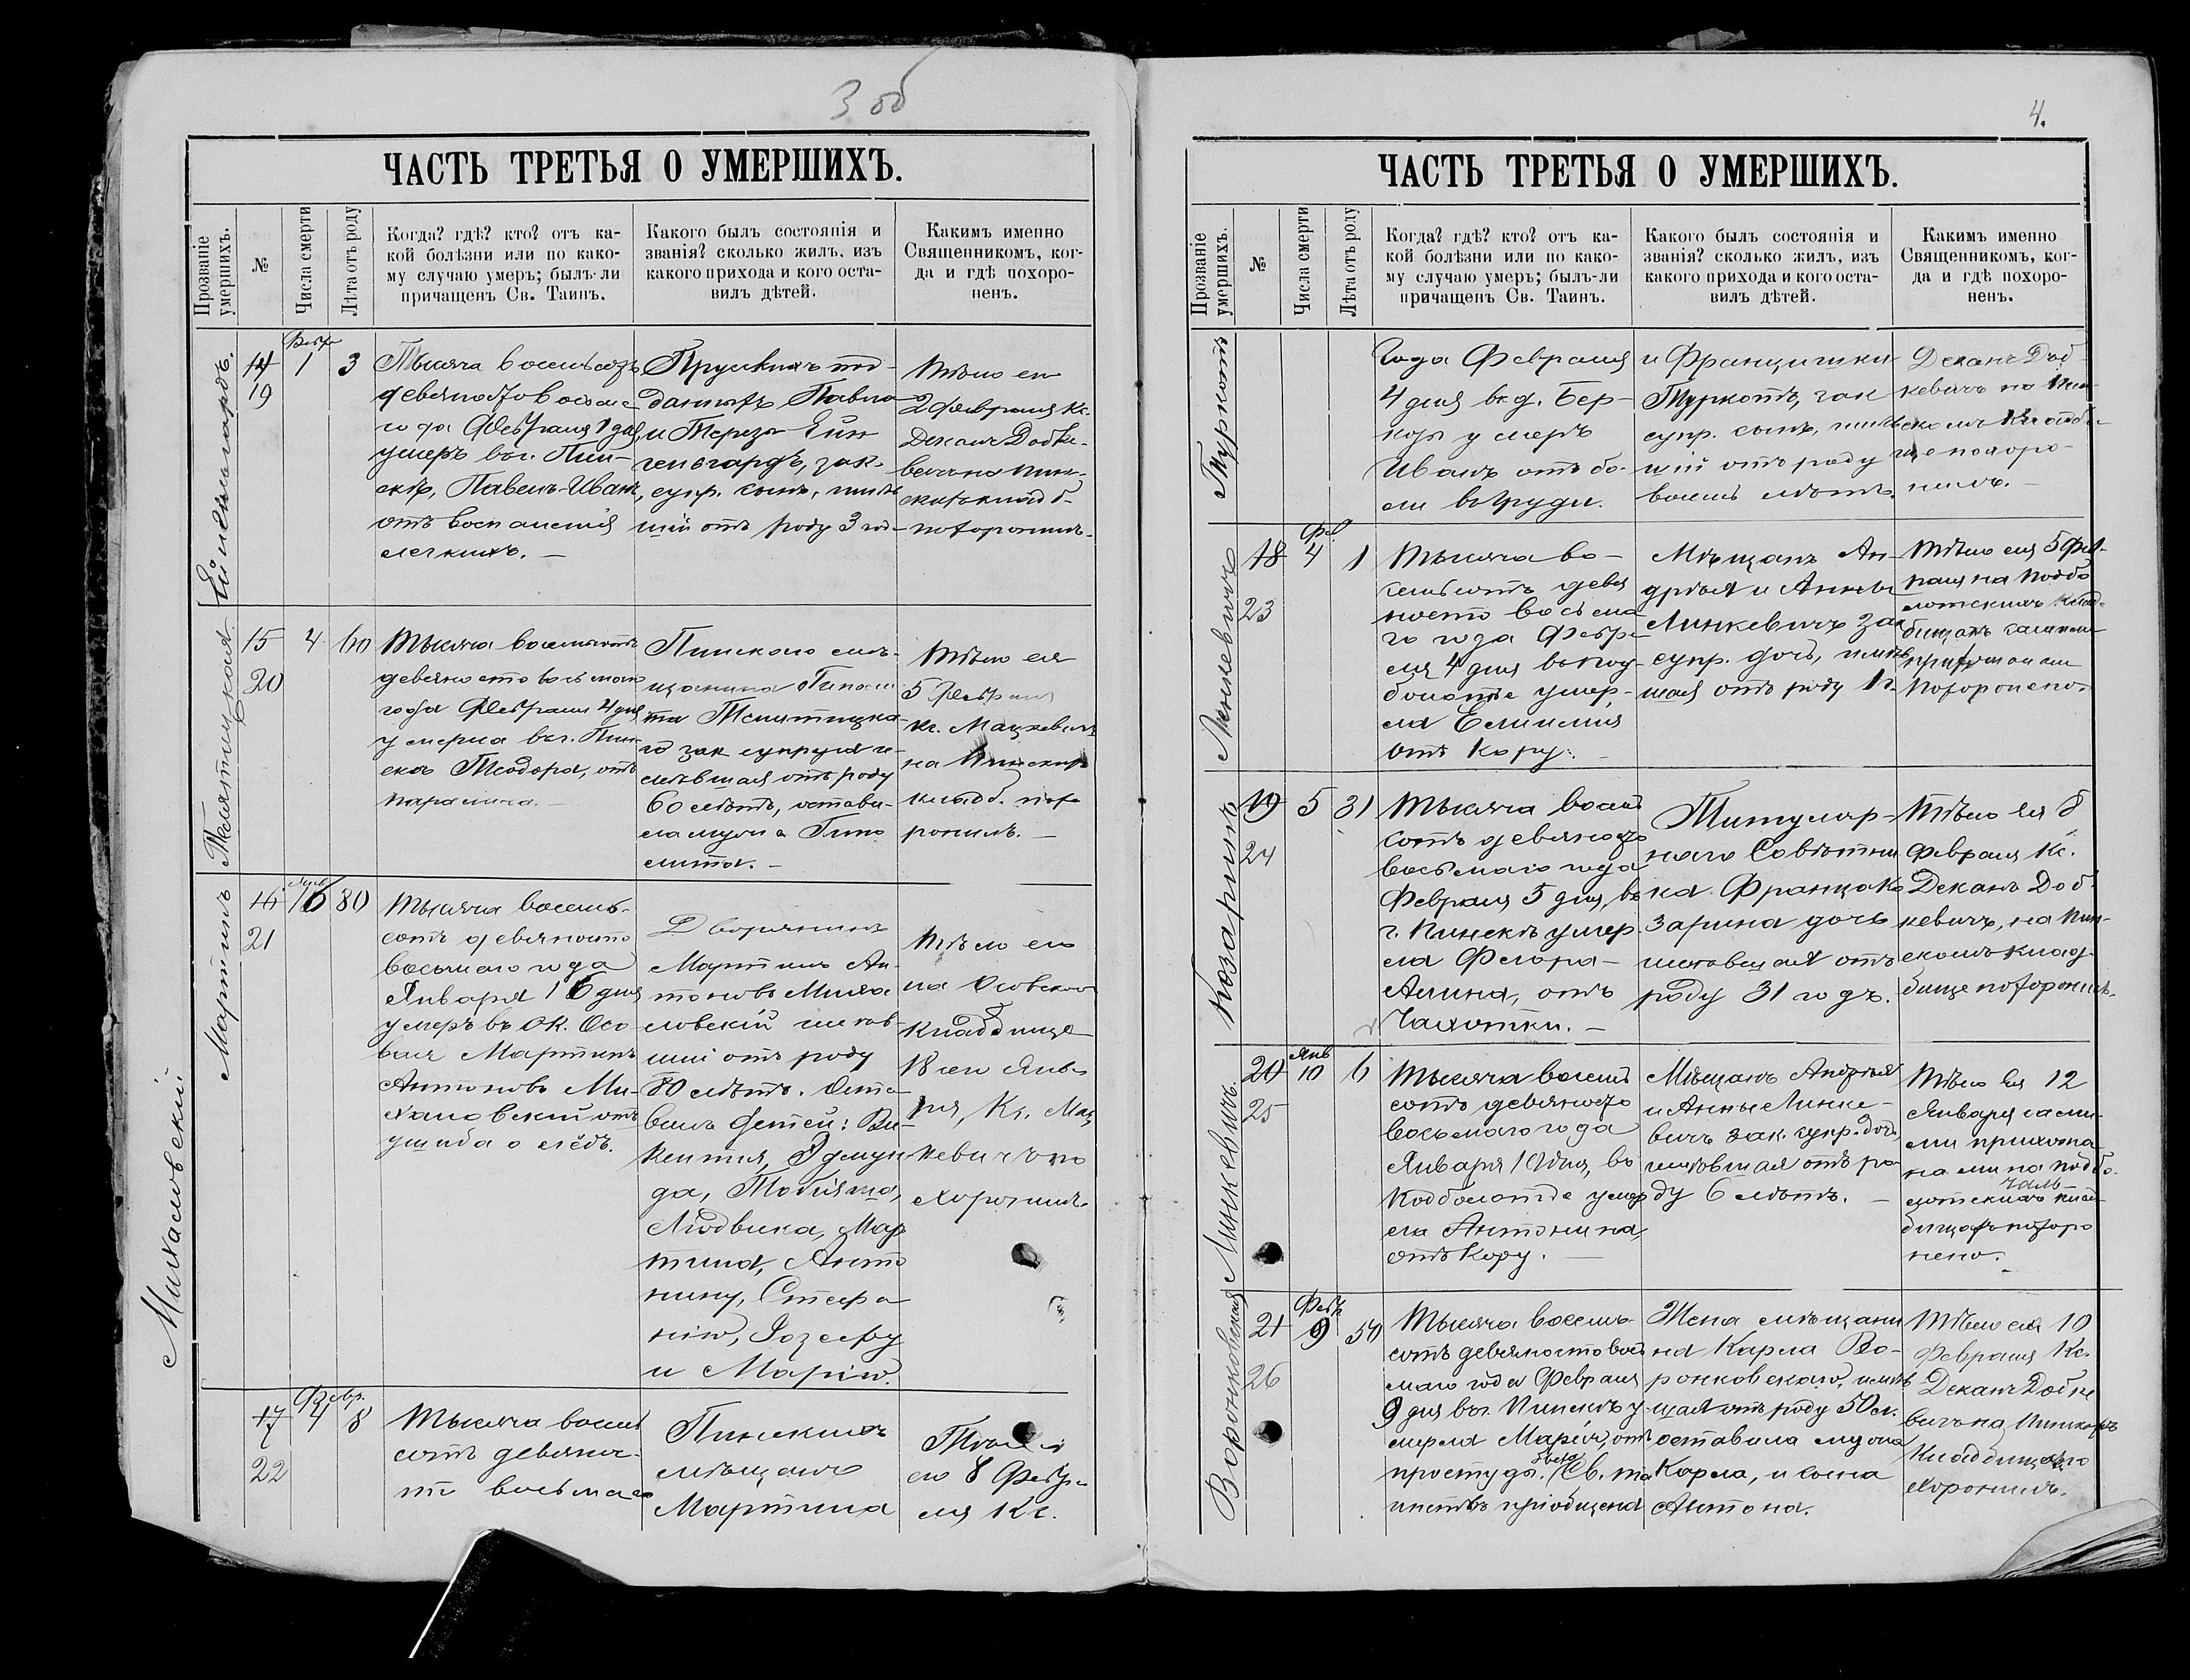 3 об
ЧАСТЬ ТРЕТЬЯ О УМЕРШИХЪ.
Прозваніе умершихъ.
№
Числа смерти
Лѣта отъ роду
Когда? гдѣ? кто? отъ ка-
кой болѣзни или по како-
му случаю умеръ; былъ-ли
причащенъ Св. Таин.
Какого былъ состоянія и
званія? сколько жилъ, изъ
какого прихода и кого оста-
вилъ дѣтей.
Какимъ именно
Священникомъ, ког-
да и гдѣ похоро-
ненъ.
14
19
1
3
Тысяча восемьсотъ
девяносто восьма-
го года Февраля 1 дня,
умеръ въ г. Пин-
скѣ, Павелъ-Иванъ
отъ воспаленія
легкихъ. —
Прусскихъ под-
данныхъ Павла
и Терезы
зак.
супр. сынъ, имѣв
шій отъ роду 3 год
Тѣло его
2 Февраля Кс.
Деканъ Добке-
вичъ на Пин-
скихъ кладб.
похоронилъ.
15
20
4
60
Тысяча восемьсотъ
девяносто восьмаго
года Февраля 4 дня
умерла въ г. Пин-
скѣ Теодора, отъ
паралича. —
Пинскаго мѣ-
щанина Гипполи
та
го зак супруга и-
мѣвшая отъ роду
60 лѣтъ, остави-
ла мужа Гипо
лита. —
Тѣло ея
5 Февраля
Кс. Мацкевичъ
на Пинскихъ
кладб. похо
ронилъ. —
Михаловскій
Мартинъ
16
21
16
80
Тысяча восемь-
сотъ девяносто
восьмаго года
Января 16 дня
умеръ въ ок. Осо
вая Мартинъ
Антоновъ Ми-
халовскій отъ
ушиба о лёдъ.
Дворянинъ
Мартинъ Ан-
тоновъ Миха
ловскій имѣв-
шій отъ роду
80 лѣтъ. Оста-
вилъ дѣтей: Ви-
кентія, Эдмун
да, Тобіяша,
Людвика, Мар
тина, Анто
нину, Стефа
нію, Іозефу
и Марію.
Тѣло его
на Осовском
кладбище
18 ген Янва
ря, Кс. Мац
кевичъ по
хоронилъ.
17
22
Февр.
4
8
Тысяча восемь
сотъ девянос-
то восьмаго
Пинскихъ
мѣщанъ
Мартина
Тѣло
его 8 Февра
ля Кс.
4.
ЧАСТЬ ТРЕТЬЯ О УМЕРШИХЪ.
Прозваніе умершихъ.
№
Числа смерти
Лѣта отъ роду
Когда? гдѣ? кто? отъ ка-
кой болѣзни или по како-
му случаю умеръ; былъ-ли
причащенъ Св. Таин.
Какого былъ состоянія и
званія? сколько жилъ, изъ
какого прихода и кого оста-
вилъ дѣтей.
Какимъ именно
Священникомъ, ког-
да и гдѣ похоро-
ненъ.
Туркотъ
года Февраля
4 дня въ д. Бер-
коз умеръ
Иванъ отъ бо-
ли въ груди.
и Францишки
Туркотъ, зак
супр. сынъ, имѣв
шій отъ роду
восемь лѣтъ.
Деканъ Доб-
кевичъ на Пин-
скомъ кладби-
ще похоро-
нилъ. —
Линкевичъ
18
23
Фев
4
1
Тысяча во-
семьсотъ девя
носто восьма-
го года Февра-
ля 4 дня въ Под-
болотѣ умер-
ла Емилія
отъ кору. —
Мѣщанъ Ан-
дрѣя и Анны
Линкевичъ зак
супр. дочь, имѣв
шая отъ роду 1 г.
Тѣло ея 5 Фев-
раля на Подбо
лотскихъ клад-
бищахъ самими
прихожанами
похоронено.
Козаринъ
19
24
5
31
Тысяча восемь
сотъ девяносто
восьмаго года
Февраля 5 дня, въ
г. Пинскѣ умер-
ла Флора-
Алина, отъ
Чахотки. —
Титуляр-
наго Совѣтни
ка Франца Ко
зарина дочь
имѣвшая отъ
роду 31 годъ.
Тѣло ея 8
Февраля Кс.
Деканъ Доб-
кевичъ, на Пин-
скомъ клад-
бище похоронилъ.
Линкевичъ.
20
25
Янв
10
6
Тысяча восемь
сотъ девяносто
восьмаго года
Января 10 дня, въ
Подболотѣ умер
ла Антонина,
отъ кору. —
Мѣщанъ Андрѣя
и Анны Линке-
вичъ зак. супр. дочь,
имѣвшая отъ ро
ду 6 лѣтъ. —
Тѣло ея 12
Января сами-
ми прихожа
нами на Подбо-
лотскихъ клад-
бищахъ похоро
нено. —
Воронковская
21
26
Февр
9
50
Тысяча восемь-
сотъ девяносто вось
маго года Февраля
9 дня въ г. Пинскѣ у-
мерла Марія, отъ
простуды. Св. та
инствъ пріобщена
Жена мѣщани
на Карла Во-
ронковскаго, имѣв
шая отъ роду 50 л.
оставила мужа
Карла, и сына
Антона.
Тѣло ея 10
Февраля Кс.
Деканъ Добке
вичъ на Пинскихъ
Кладбищахъ по
хоронилъ.